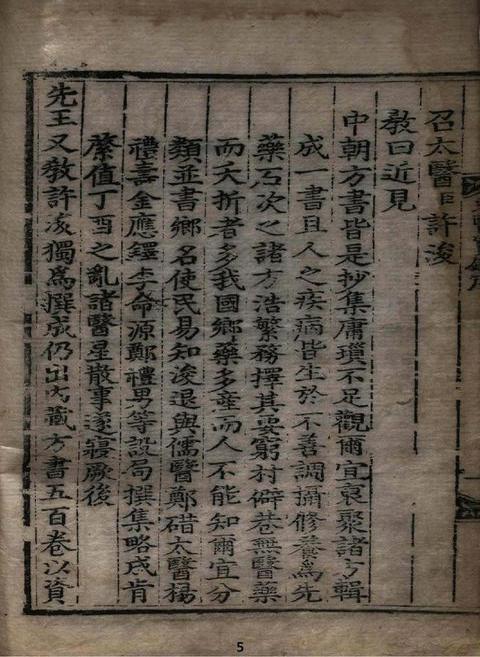 召太醫臣許浚
教曰近見
中朝方書皆是抄集庸瑣不足觀爾宜裒聚諸方輯
成一書且人之疾病皆生於不善調攝修養爲先
藥石次之諸方浩繁務擇其要窮村僻巷無醫藥
而夭折者多我國鄉藥多産而人不能知爾宜分
類並書鄉名使民易知浚退與儒醫鄭碏太醫楊
禮壽金應鐸李命源鄭禮男等設局撰集略成肯
綮值丁酉之亂諸醫星散事遂寢厥後
先王又敎許浚獨爲撰成仍出內藏方書五百卷以資
5